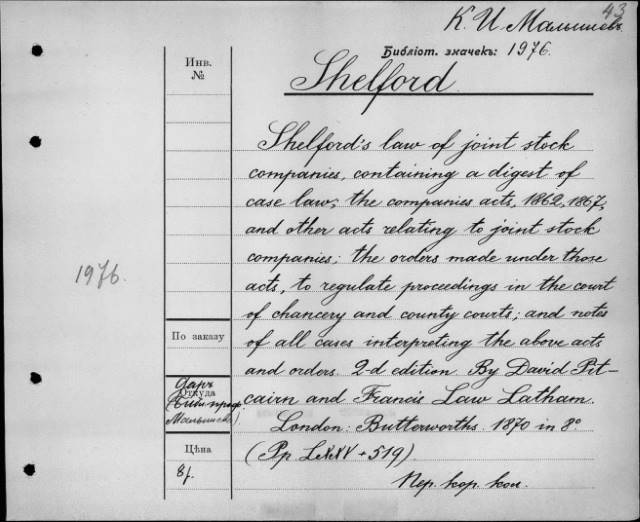 43
К. И. Малышевъ
Библіот. значекъ: 1976.
Инв.
№
Shelford
Shelford's law of joint stock
companies, containing a digest of
case law; the companies acts, 1862, 1867,
and other acts relating to joint stock
companies; the orders made under those
acts, to regulate proceedings in the court
of chancery and county courts; and notes
of all cases interpreting the above acts
and orders. 2-d edition. By David Pit-
cairn and Francis Law Latham.
London: Butterworths. 1870 in 8°
(Pp. LXXXV + 519)
Пер. кор. кол.
1976.
По заказу
Даръ
Откуда
проф.
Малышева).
Цѣна
8 р.